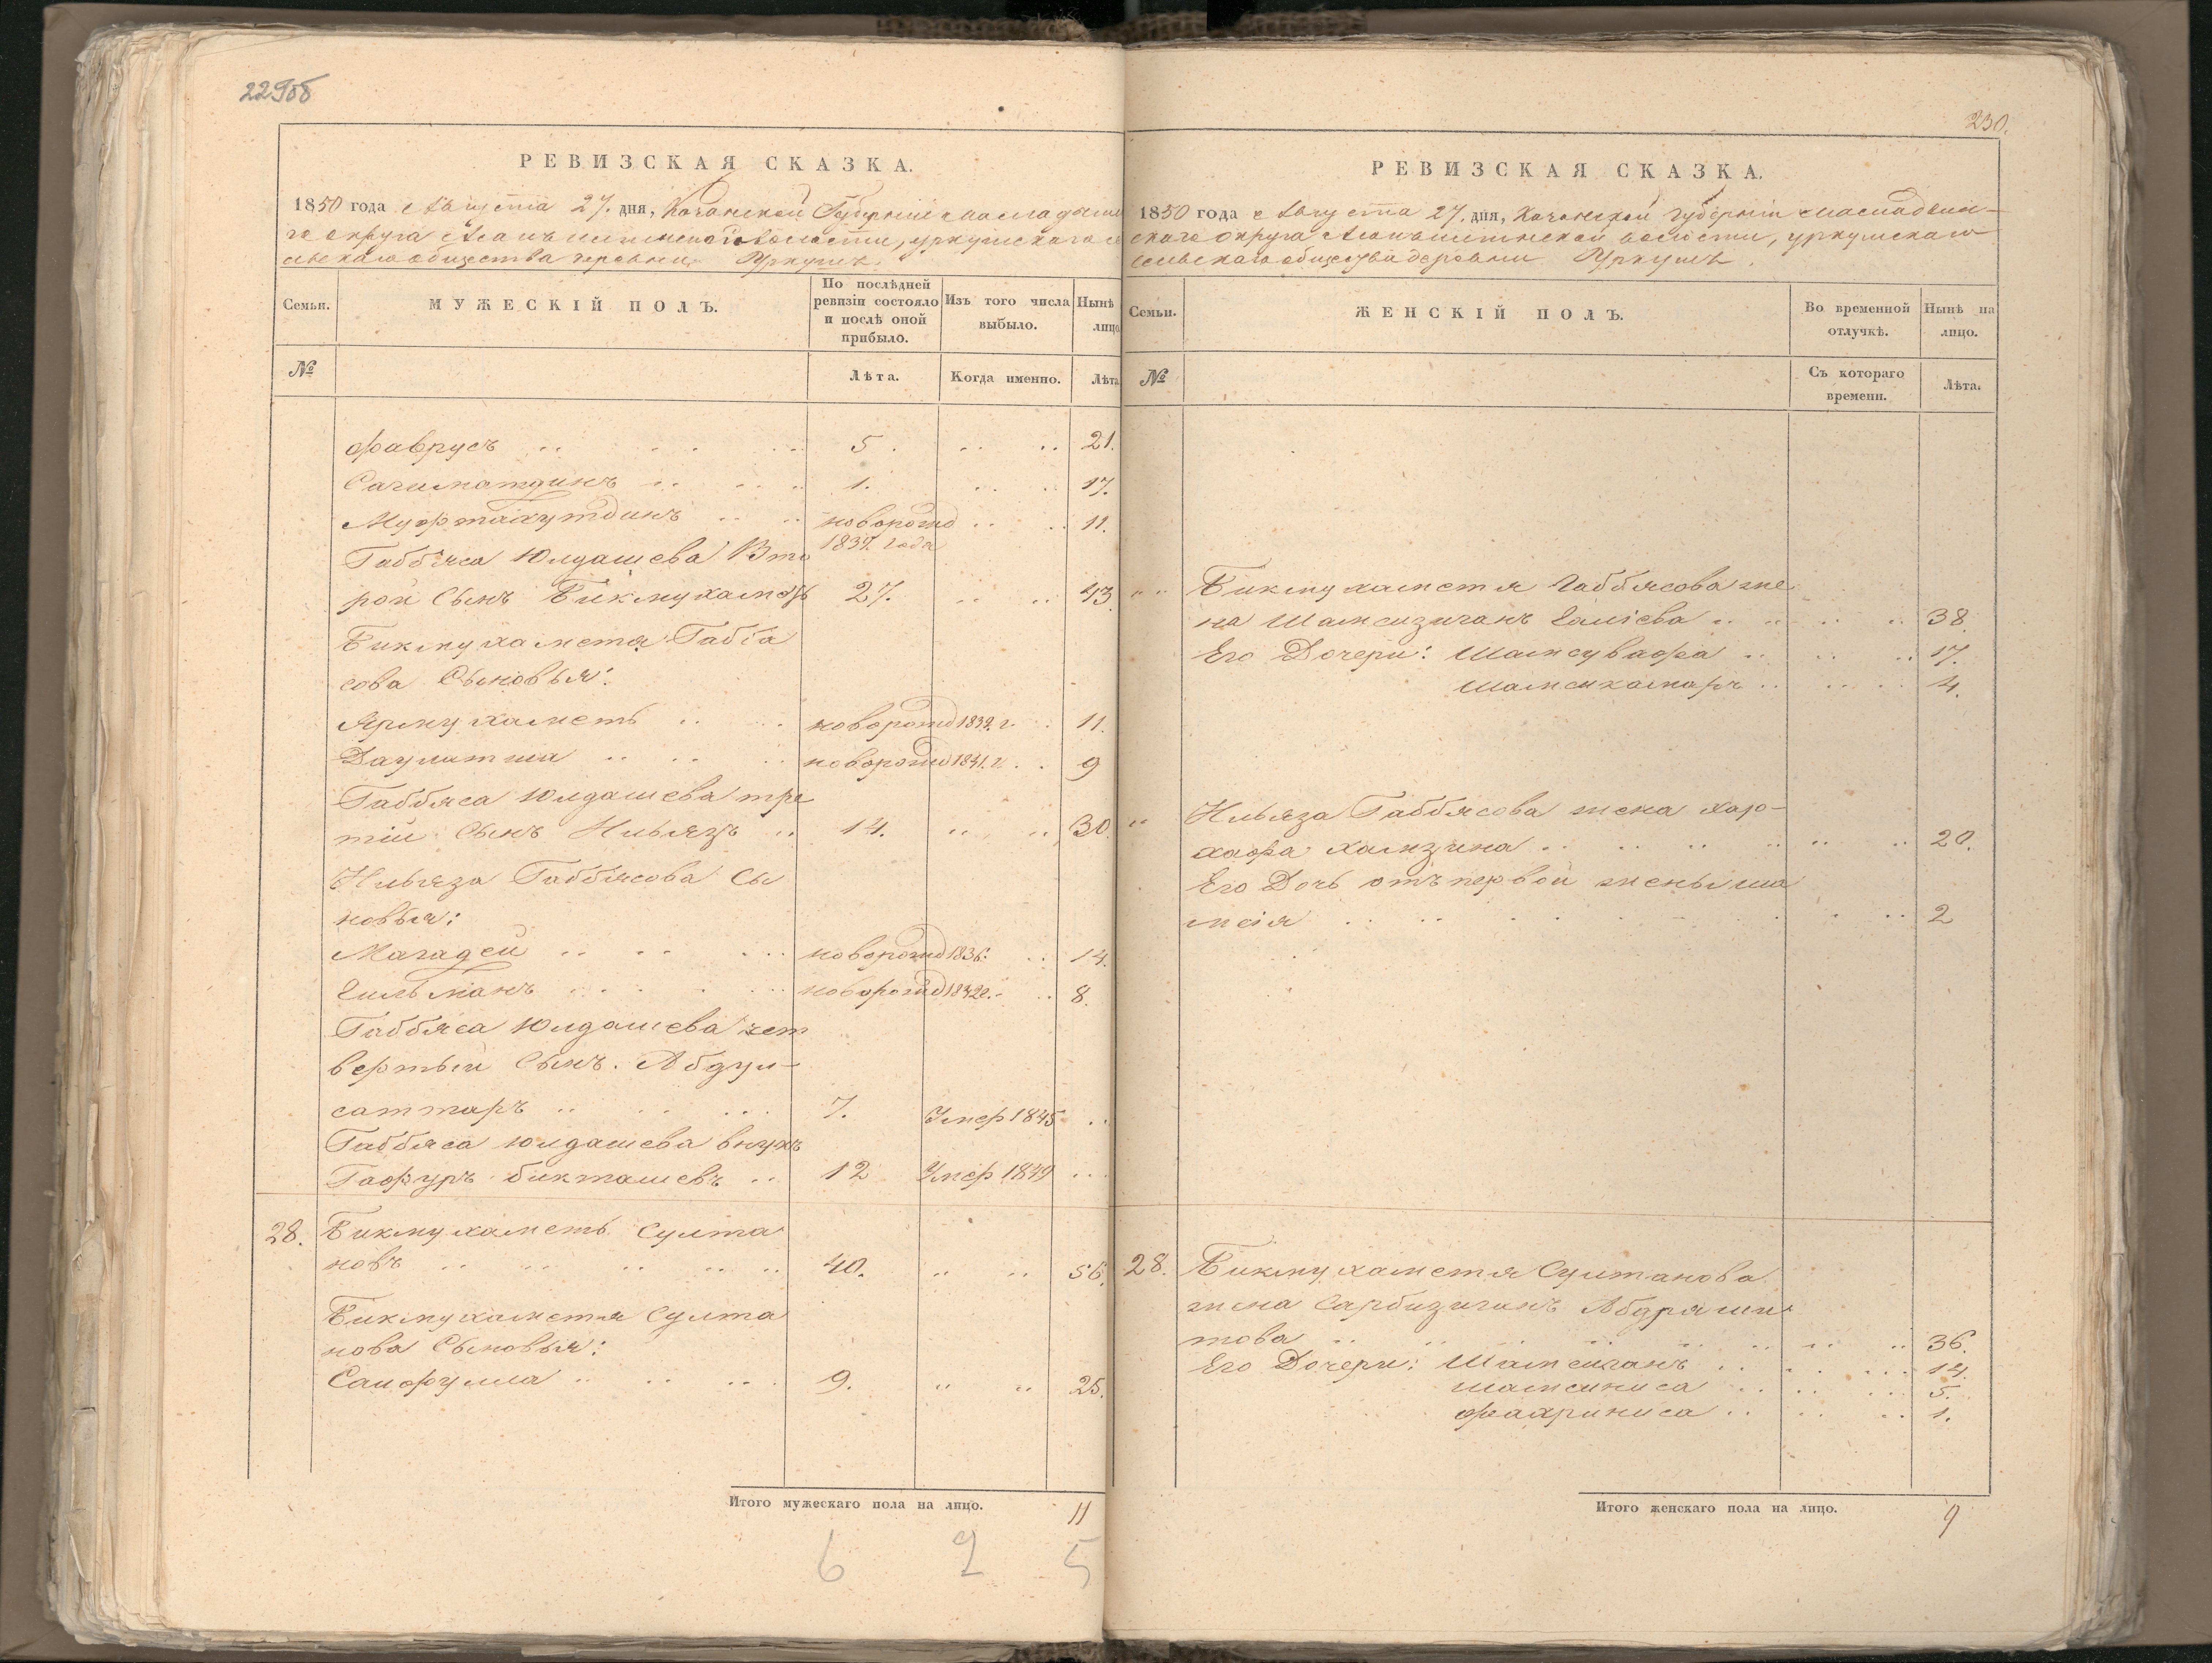 229об
РЕВИЗСКАЯ СКАЗКА.
1850 года Августа 27. дня, Казанской Губерніи Мамадыш
го округа волости, уркушскаго се
льскаго общества деревни Уркушъ.
Семьи.
МУЖЕСКІЙ ПОЛЪ.
По послѣдней ревизіи состояло и послѣ оной прибыло.
Изъ того числа выбыло.
Нынѣ лицо
№
Лѣта.
Когда именно.
Лѣта
Фаврусъ 5 21.
1. 17.
Муфтахутдинъ новорожд 1839. года 11.
Габбяса Юлдашева Вто
рой Сынъ Бикмухаметъ 27. 43.
Бикмухаметя Габбя
сова Сыновья:
Ярмухаметъ новорожд 1839. г. 11.
Даулитша новорожд 1841. г. 9
Габбяса Юлдашева тре
тій Сынъ Ильязъ 14. 30.
Ильяза Габбясова Сы
новья:
Магадей новорожд 1836. 14.
новорожд 1842г. 8.
Габбяса Юлдашева чет
вертый Сынъ. Абдул-
саттаръ 7. Умер 1845
Габбяса Юлдашева внукъ
Гафуръ бикташевъ 12 Умер 1849
28. Бикмухаметъ Султа
новъ 40. 56.
Бикмухаметя Султа
нова Сыновья:
Саифулла 9. 25.
Итого мужескаго пола на лицо. 11
6 2 5
230.
РЕВИЗСКАЯ СКАЗКА.
1850 года Августа 27. дня, Казанской губерніи Мамадыш-
скаго округа волости, уркушскаго
сельскаго общества деревни Уркушъ.
Семьи.
ЖЕНСКІЙ ПОЛЪ.
Во временной отлучкѣ.
Нынѣ на лицо.
№
Съ котораго времени.
Лѣта.
Бикмухаметя Габбясова же
на Шамсизиганъ Галіева 38.
Его Дочери: Шамсувафа 17.
Шамсикамаръ 4.
Ильяза Габбясова жена
хамзина 20.
Его Дочь отъ первой жены ша
мсія 2
28. Бикмухаметя Султанова
жена Сарбизиганъ Абдряши
това 36.
Его Дочери: Шамсиганъ 14.
шамсиниса 5.
фахриниса 1.
Итого женскаго пола на лицо. 9